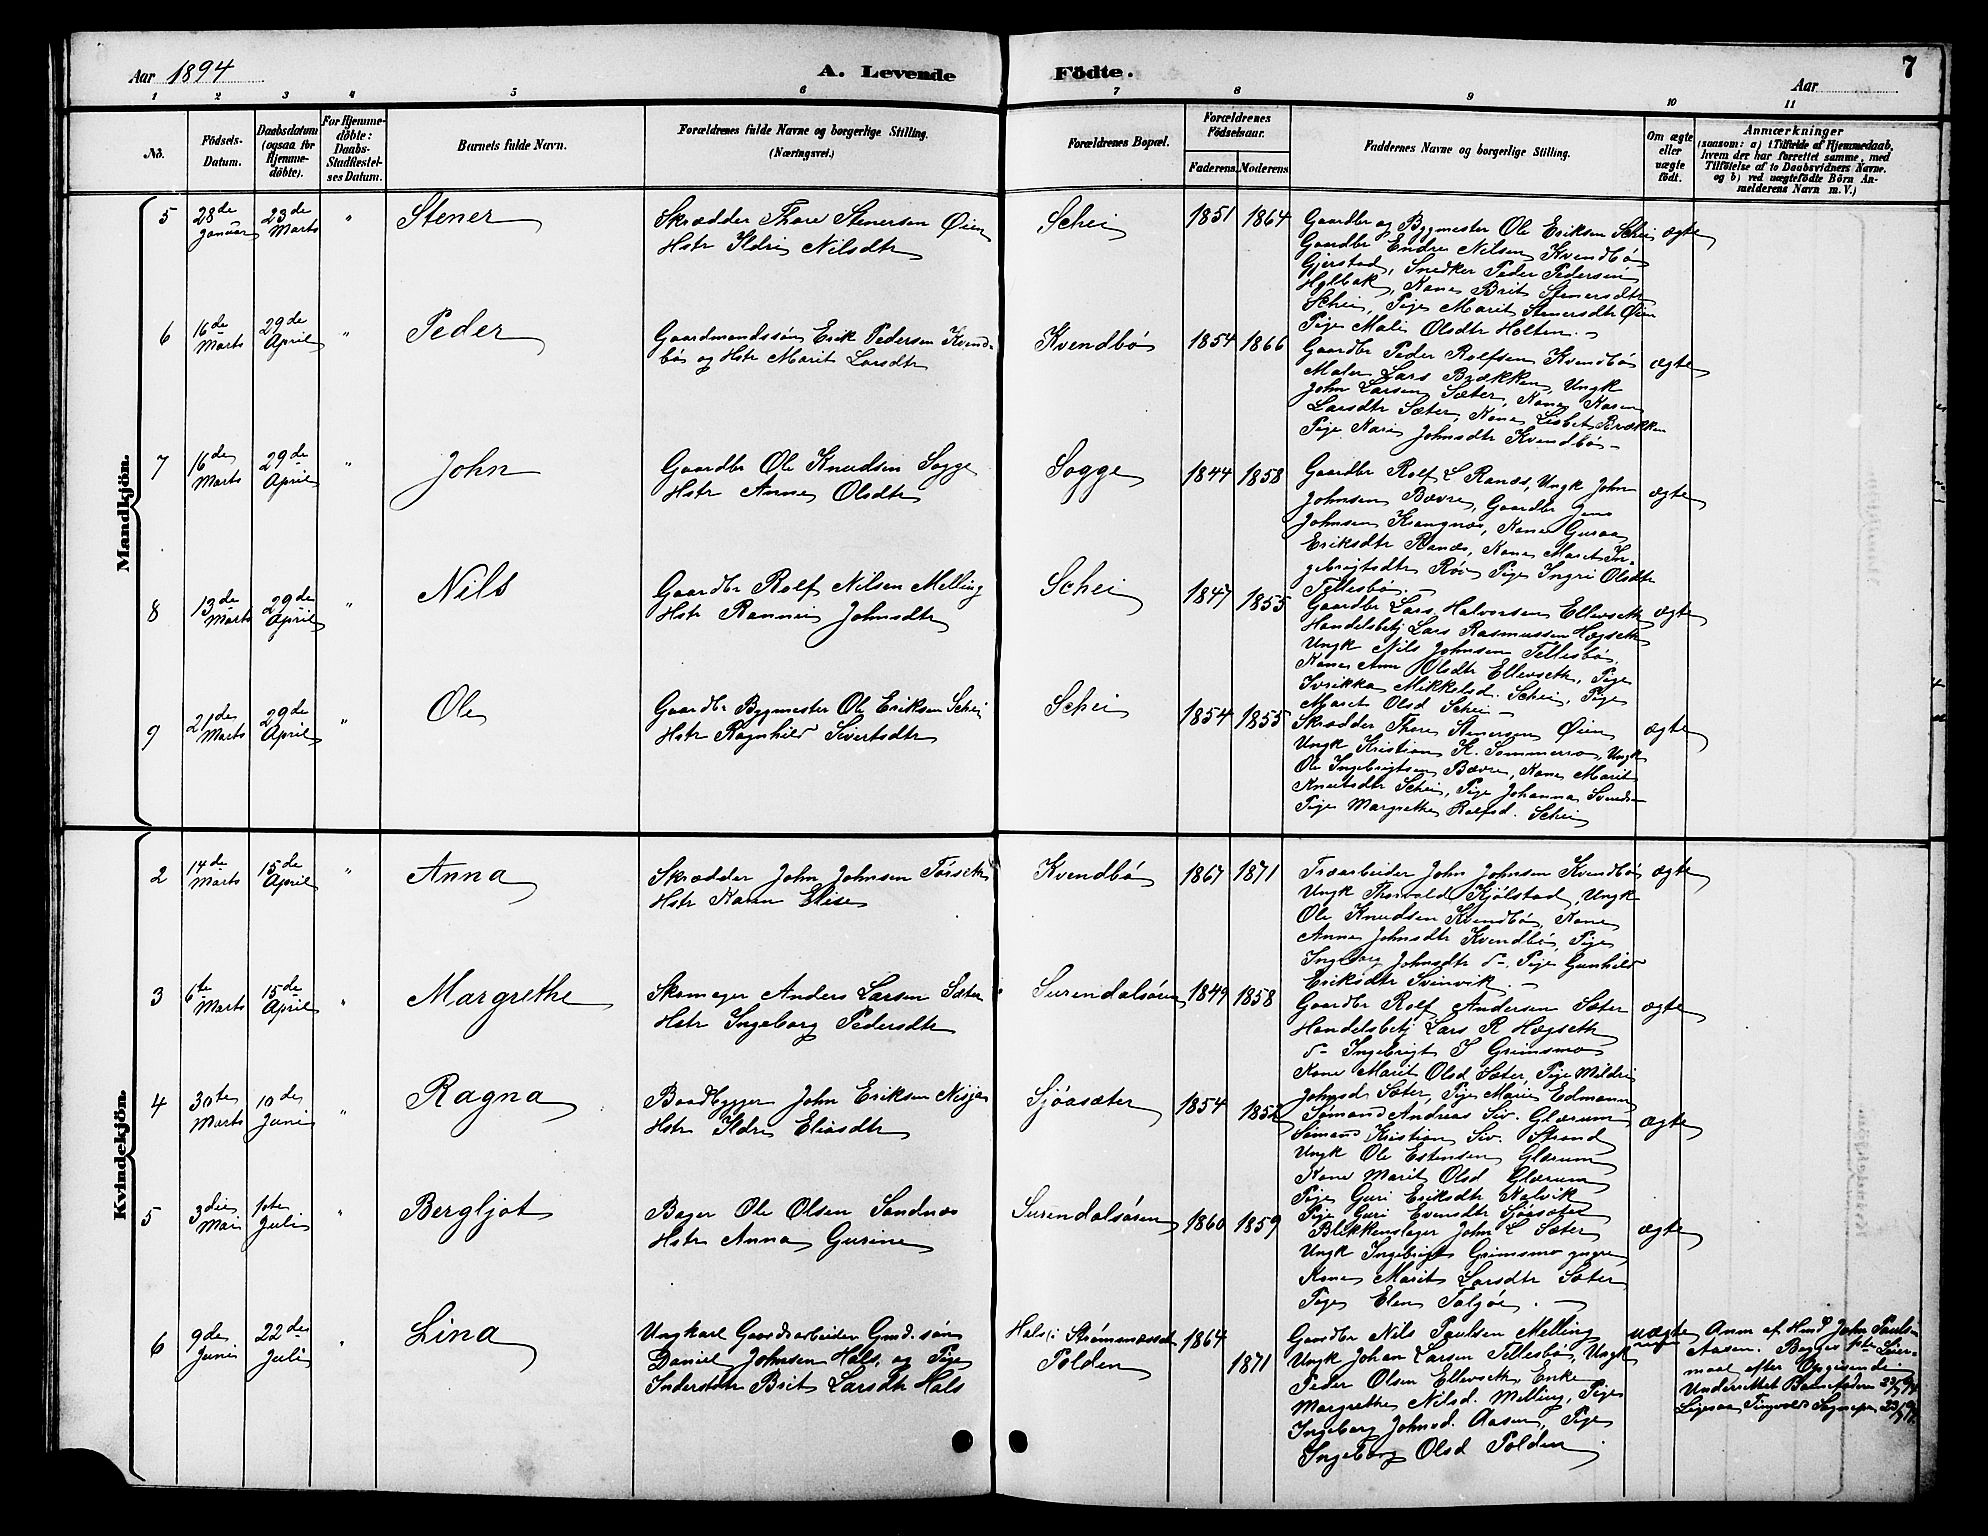 Aar 1894
A. Levende
Födte.
Aar
7
1 2 3 4 5 6 7 8 9 10 11
No.
Födsels-Datum.
Daabsdatum (ogsaa for Hjemme-döbte).
For Hjemme-döbte: Daabs-Stadfæstel-ses Datum.
Barnets fulde Navn.
Forældrenes fulde Navne og borgerlige Stilling.
(Næringsvei.)
Forældrenes Bopæl.
Forældrenes Födselsaar.
Faderens. Moderens.
Faddernes Navne og borgerlige Stilling.
Om ægte eller uægte født.
Anmærkninger
(saasom: a) i Tilfælde af Hjemmedaab,
hvem der har forrettet samme, med
Tilföielse af to Daabsvidners Navne.
og b) ved uægtefödte Börn An-
melderens Navn m. V.)
Mandkjön.
5 28de Januar 23de Marts " Stener
Skrædder Thore Stenersen Øien
Hstr Ildri Nilsdtr
Schei 1851 1864
Gaardbr og Bygmester Ole Eriksen Schei
Gaardbr Endre Nilsen Kvendbø
Gjerstad, Snedker Peder Pedersen
Holbak, Kone Brit Stenersdtr
Schei, Pige Marit Stenersdtr Øien
Pige Mali Olsdtr Holten
ægte
6 16de Marts 29de April " Peder
Gaardmandssøn Erik Pedersen Kvend-
bø og Hstr Marit Larsdtr
Kvendbø 1854 1866
Gaardbr Peder Rolfsen Kvendbø
Maler Lars Brækken, Ungk
John Larsen Sæter, Kone Karen
Larsdtr Sæter, Kone Lisbet Brækken
Pige Kari Johnsdtr Kvendbø
ægte
7 16de Marts 29de April " John
Gaardbr Ole Knudsen Sogge
Hstr Anne Olsdtr
Sogge 1844 1858
Gaardbr Rolf L Ranæs, Ungk John
Johnsen Bævre, Gaardbr Jens
Johnsen Kvangnæs, Kone Guraa
Eriksdtr Ranæs, Kone Maret In-
gebrigtsdtr Røv, Pige Ingri Olsdtr
Tellesbø.
ægte
8 13de Marts 29de April " Nils
Gaardbr Rolf Nilsen Melling
Hstr Rannei Johnsdtr
Schei 1847 1855
Gaardbr Lars Halvorsen Ellevseth
Handelsbetj Lars Rasmussen Hægseth
Ungk Nils Johnsen Tellesbø
Kone Ane Olsdtr Ellevseth, Pige
Mikkelsd. Schei, Pige
Maret Olsd Schei
ægte
9 21de Marts 29de April " Ole
Gaardbr Bygmester Ole Eriksen Schei
Hstr Ragnhild Sivertsdtr
Schei 1854 1855
Skrædder Thore Stenersen Øien
Ungk Kristian K. Sommerro, Ungk
Ole Ingebrigtsen Bævre, Kone Marit
Knutsdtr Schei, Pige Johanna
Pige Margrethe Rolfsd. Schei
ægte
Kvindekjön.
2 14de Marts 15de April " Anna
Skrædder John Johnsen Torseth
Hstr Karen Elise
Kvendbø 1867 1871
Træarbeider John Johnsen Kvendbø
Ungk Thorvald Kjølstad, Ungk
Ole Knudsen Kvendbø, Kone
Anne Johnsdtr Kvendbø, Pige
Ingeborg Johnsdtr d-, Pige Gunhild
Eriksdtr Svinvik
ægte
3 6te Marts 15de April " Margrethe
Skomager Anders Larsen Sæter
Hstr Ingeborg Pedersdtr
Surendalsøren 1849 1858
Gaardbr Rolf Andersen Sæter
Handelsbetj Lars R Hægseth
d- Ingebrigt J Grimsmo
Kone Marit Olsd Sæter, Pige Mildri
Johnsd Sæter, Pige Marie Edmann
ægte
4 30te Marts 10de Juni " Ragna
Baadbygger John Eriksen Nisja
Hstr Ildri Eliasdtr
Sjøasæter 1854 1852
Sømand Andreas Siv. Glærum
Sømand Kristian Siv. Strand
Ungk Ole Estensen Glærum
Kone Marit Olsd Glærum
Pige Guri Eriksdtr Kalvik
Pige Guri Evendtr Sjøasæter
ægte
5 3die Mai 1ste Juli " Bergljot
Bager Ole Olsen Sandnæs
Hstr Anna Gurine
Surendalsøren 1860 1859
Blikkenslager John L Sæter
Ungk Ingebrigt Grimsmo yngre
Kone Marit Larsdtr Sæter,
Pige Elen Talgø
ægte
6 9de Juni 22de Juli " Lina
Ungkarl Gaardsarbeider Gmd.søn
Daniel Johnsen Hals, og Pige
Inderstdtr Brit Larsdtr Hals
Hals i Strømsnæsset 1864
Polden 1871
Gaardbr Nils Paulsen Melling
Ungk Johan Larsen Tellesbø, Ungk
Peder Olsen Ellevseth, Enke
Margrethe Nilsd. Melling, Pige
Ingeborg Johnsd. Aasen, Pige
Ingeborg Olsd Polden
uægte
Anm af Hmd John Pauls
Aasen. Begges 1ste Leier-
maal efter Opgivende
Underrettet Barnefaderen 23/7 94
Ligesaa Tingvold Sognepr 23/7 94.